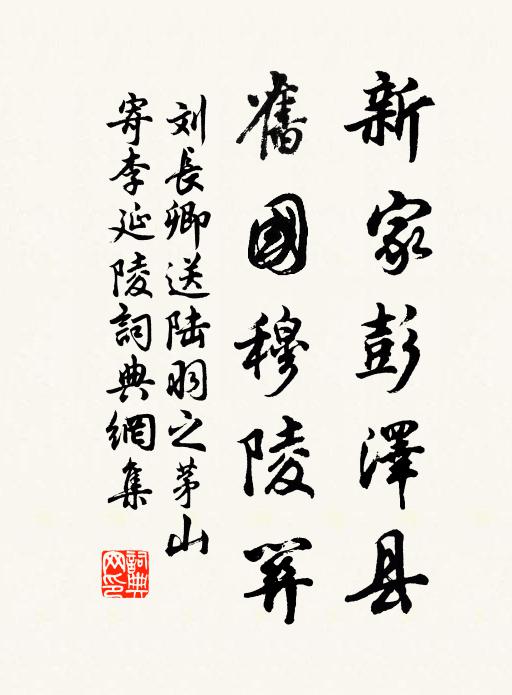 新家彭澤县
舊國穆陵關
刘長卿送陆羽之茅山
寄李延陵詞典網集
詞典
网印